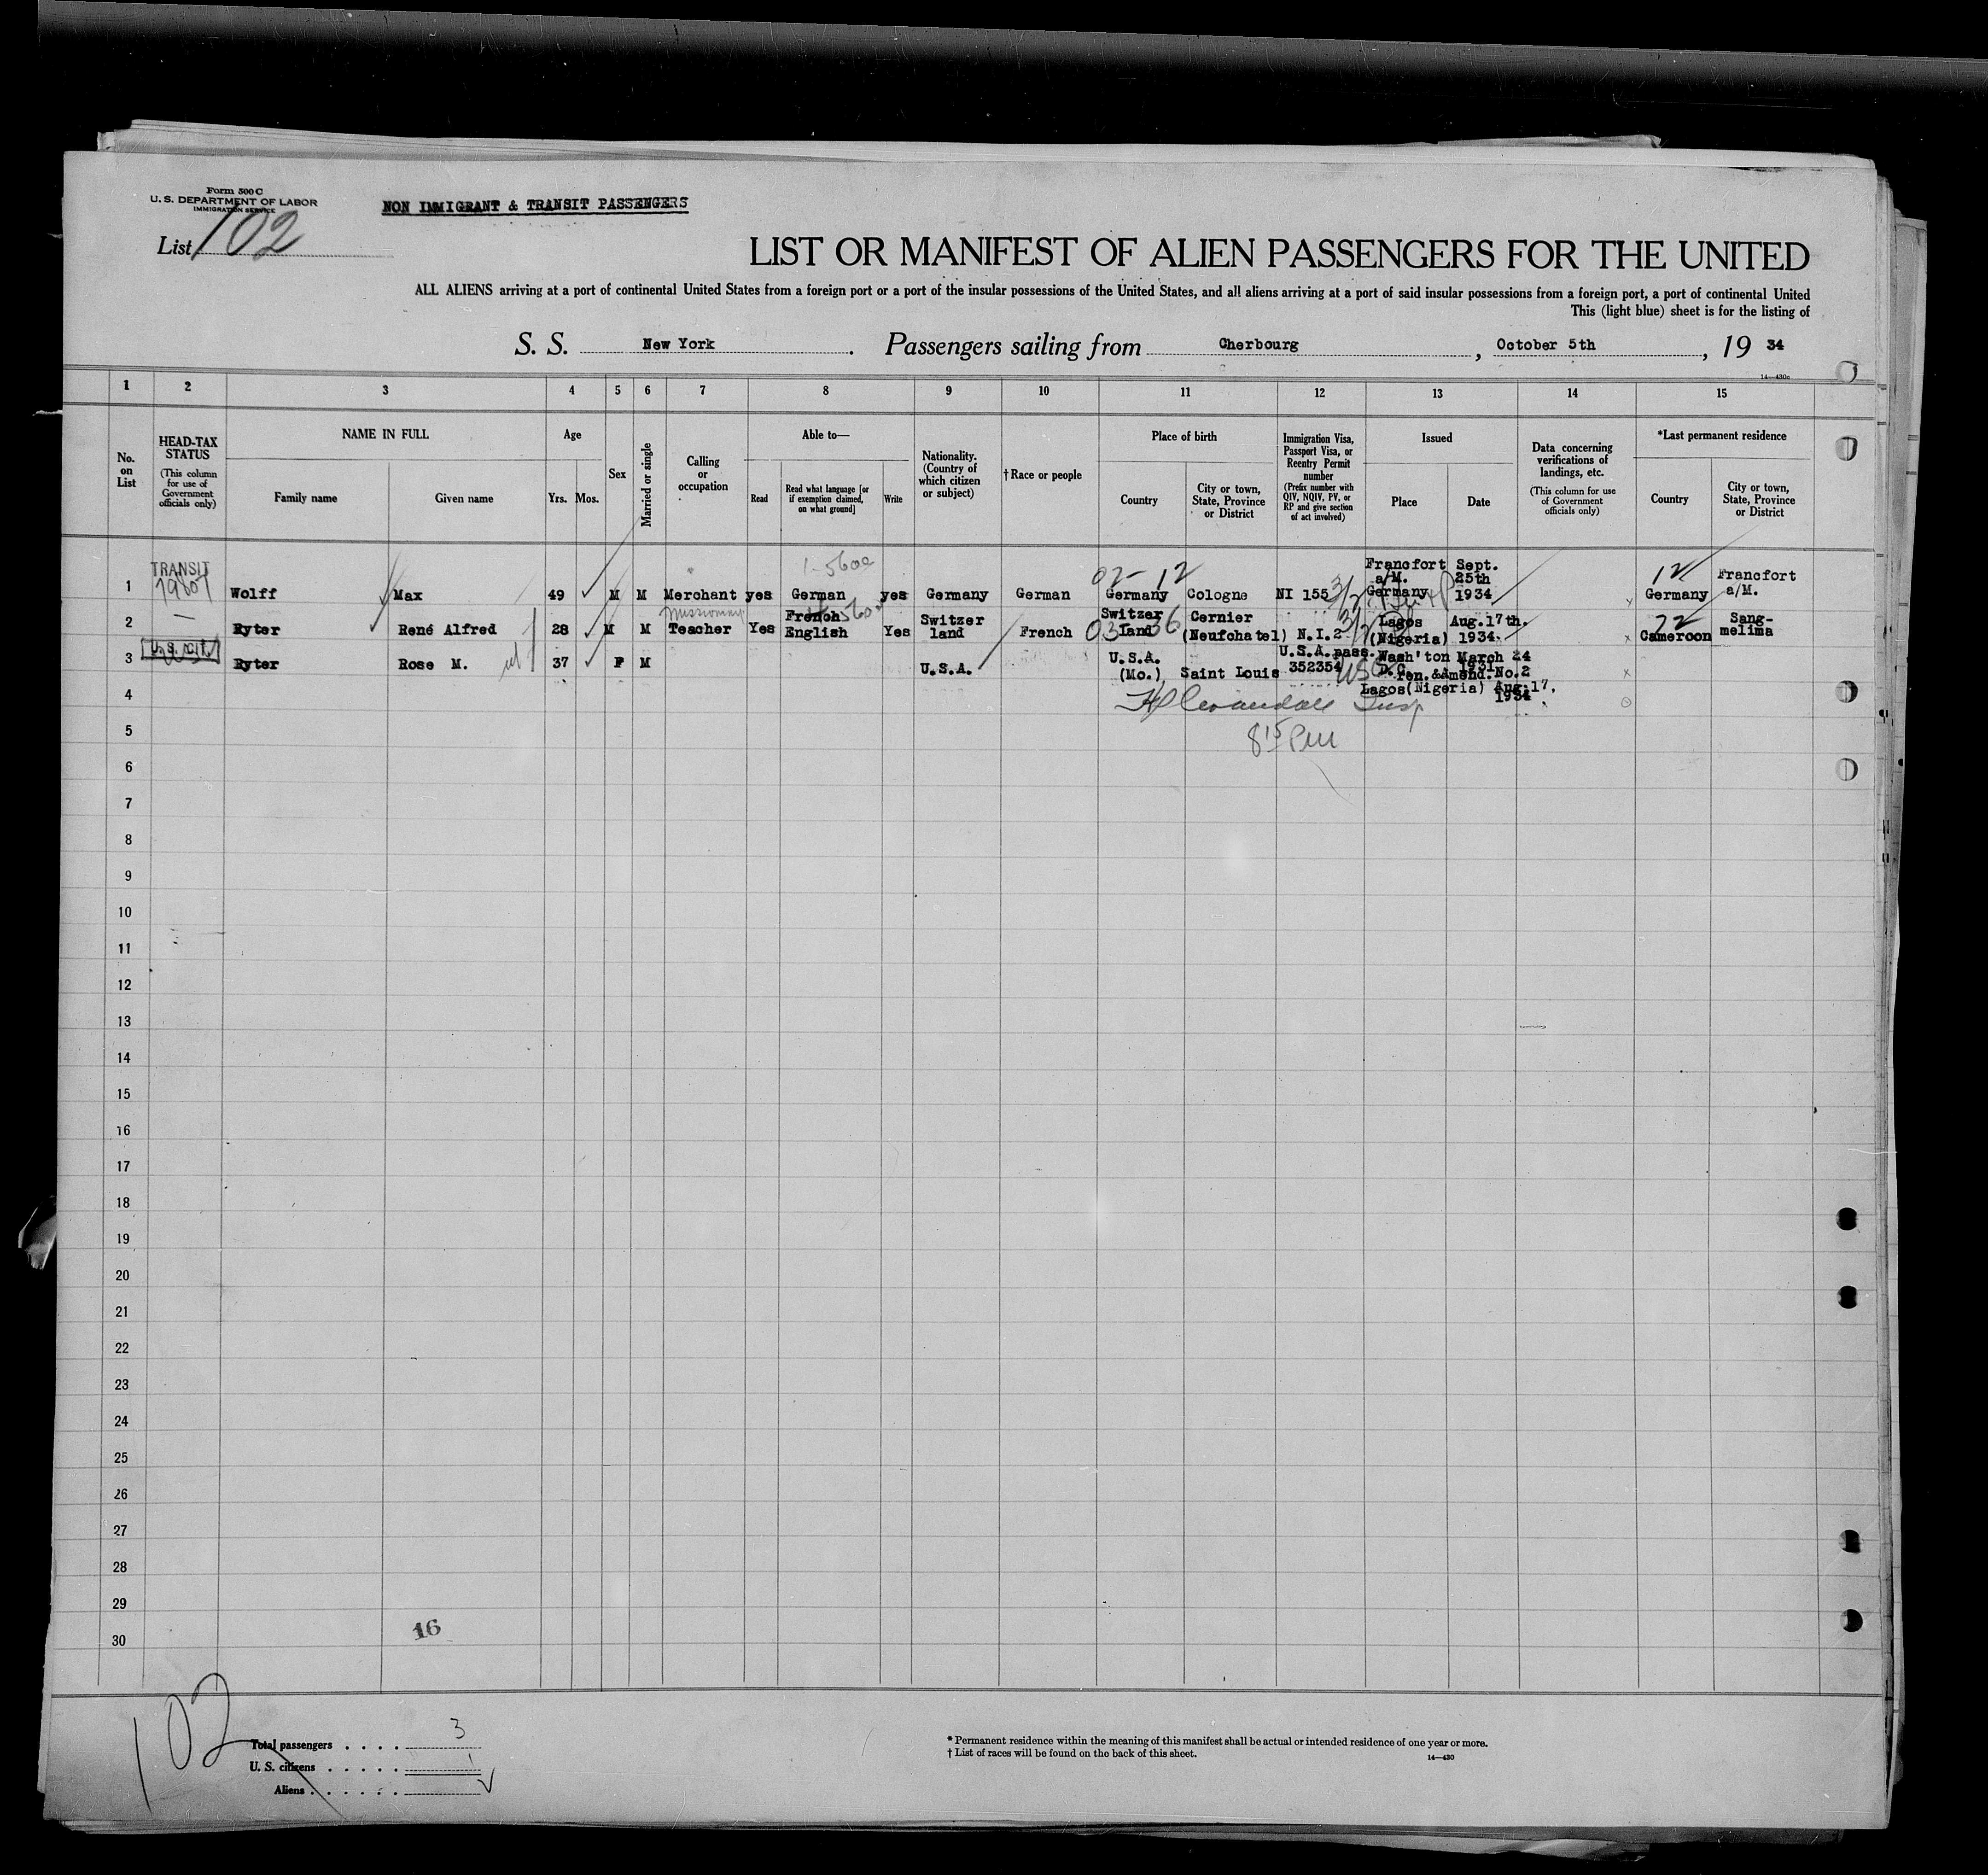 Form 500 C
U. S. DEPARTMENT OF LABOR
IMMIGRATION SERVICE
NON IMMIGRANT & TRANSIT PASSENGERS
List 102
LIST OR MANIFEST OF ALIEN PASSENGERS FOR THE UNITED
ALL ALIENS arriving at a port of continental United States from a foreign port or a port of the insular possessions of the United States, and all aliens arriving at a port of said insular possessions from a foreign port, a port of continental United
This (light blue) sheet is for the listing of
S. S. New York. Passengers sailing from Cherbourg, October 5th, 19 34
14—430c
1 2 3 4 5 6 7 8 9 10 11 12 13 14 15
No. on List
HEAD-TAX STATUS
(This column for use of Government officials only)
NAME IN FULL
Family name
Given name
Age
Yrs. Mos.
Sex
Married or single
Calling or occupation
Able to—
Read
Read what language [or if exemption claimed, on what ground]
Write
Nationality. (Country of which citizen or subject)
† Race or people
Place of birth
Country
City or town, State, Province or District
Immigration Visa, Passport Visa, or Reentry Permit number
(Prefix number with QIV, NQIV, PV, or RP and give section of act involved)
Issued
Place
Date
Data concerning verifications of landings, etc.
(This column for use of Government officials only)
*Last permanent residence
Country
City or town, State, Province or District
1 TRANSIT Wolff Max 49 M M Merchant yes German yes Germany German 02-12 Germany Cologne NI 155 Francfort a/M. Germany Sept. 25th 1934 12 Germany Francfort a/M.
2 — Ryter René Alfred 28 M M Missionary Teacher Yes French English Yes Switzer land French 03 36 Switzer land Cernier (Neufchatel) N.I.2 Lagos (Nigeria) Aug.17th. 1934. 72 Cameroon Sang-melima
3 U.S. Cit. Ryter Rose M. 37 F M U.S.A. U.S.A. (Mo.) Saint Louis U.S.A.pass. 352354 Wash'ton D.C. March 24 1931
ren.&Amend.No.2
4 Lagos(Nigeria) Aug.17, 1934
Insp
5 8 15 PM
6
7
8
9
10
11
12
13
14
15
16
17
18
19
20
21
22
23
24
25
26
27
28
29
16
30
102
Total passengers . . . . 3
U. S. citizens . . . . . 1
Aliens . . . . . .
* Permanent residence within the meaning of this manifest shall be actual or intended residence of one year or more.
† List of races will be found on the back of this sheet.
14—430